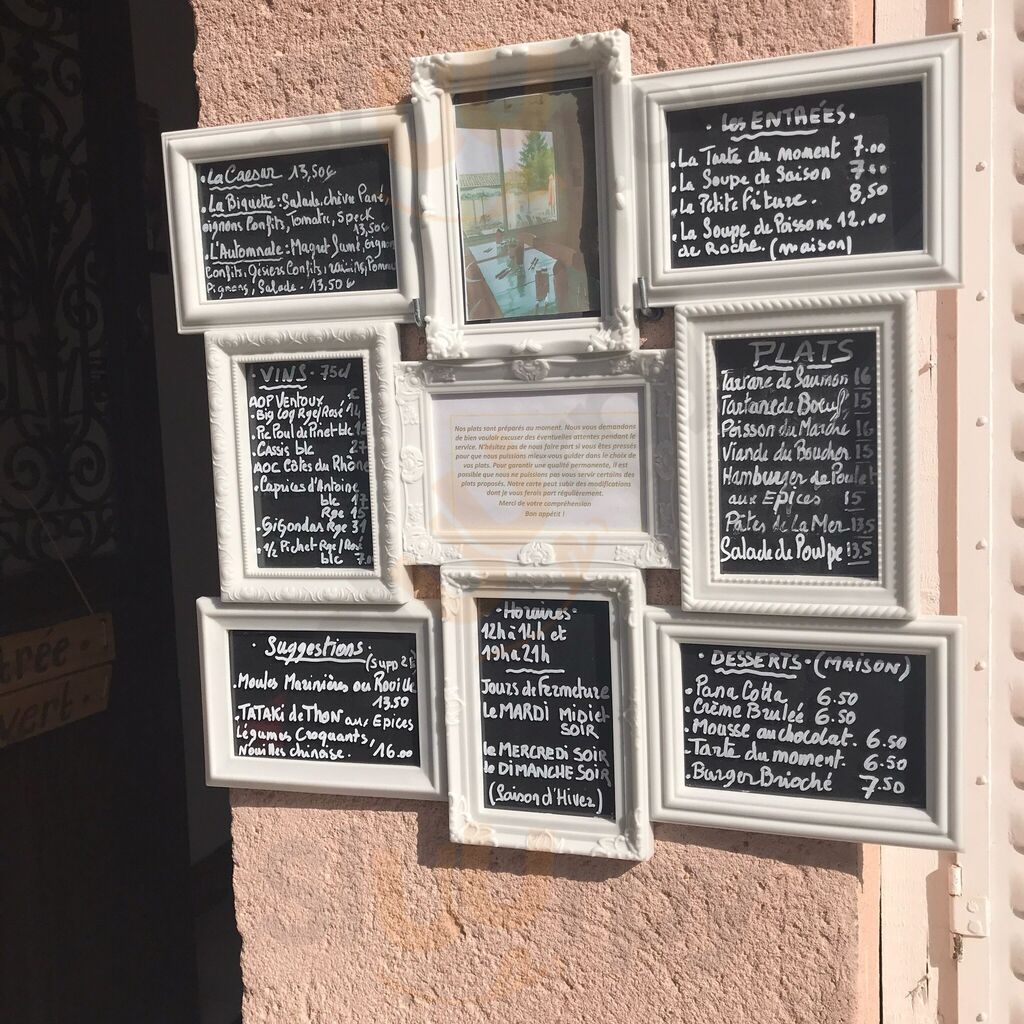 . La Caesar 13,50€
. La Biquette: Salade, chèvre Pané,
oignons Confits, Tomate, Speck
13,50€
. L'Automnale: Magret fumé,
Confits, Gésiers Confits, raisins, Pomme
Pignons, Salade. 13.50€
. Les ENTRÉES.
. La Tarte du moment 7.00
. La Soupe de Saison
. La Petite Friture. 8,50
. La Soupe de Poissons 12.00
de Roche. (maison)
. VINS. 75cl
AOP Ventoux €
. Big Coq Rge/Rosé 14
. Pic Poul de Pinet blc
. Cassis blc
AOC Côtes du Rhône
. Caprices d'Antoine
blc 17
Rge 15
. Gigondas Rge 31
. 1/2 Pichet Rge/Rosé
blc
Nos plats sont préparés au moment. Nous vous demandons
de bien vouloir excuser des éventuelles attentes pendant le
service. N'hésitez pas de nous faire part si vous êtes pressés
pour que nous puissions mieux vous guider dans le choix de
vos plats. Pour garantir une qualité permanente, il est
possible que nous ne puissions pas vous servir certains des
plats proposés. Notre carte peut subir des modifications
dont je vous ferais part régulièrement.
Merci de votre compréhension
Bon appétit !
PLATS
Tartare de Saumon 16
Tartare de Boeuf 15
Poisson du Marché 16
Viande du Boucher 15
Hamburger de Poulet
aux Epices 15
Pâtes de La Mer 13.5
Salade de Poulpe 13.5
. Suggestions.
. Moules Marinières ou Rouille
13.50
. TATAKI de THON aux Epices
Légumes Croquants,
Nouilles chinoise. 16.00
. Horaires.
12h à 14h et
19h à 21h
Jours de Fermeture
Le MARDI Midi et
SOIR
le MERCREDI SOIR
le DIMANCHE SOIR
(Saison d'Hiver)
. DESSERTS. (MAISON)
. Pana Cotta 6.50
. Crème Brulée 6.50
. Mousse au chocolat. 6.50
. Tarte du moment. 6.50
. Burger Brioché 7.50
trée.
vert.